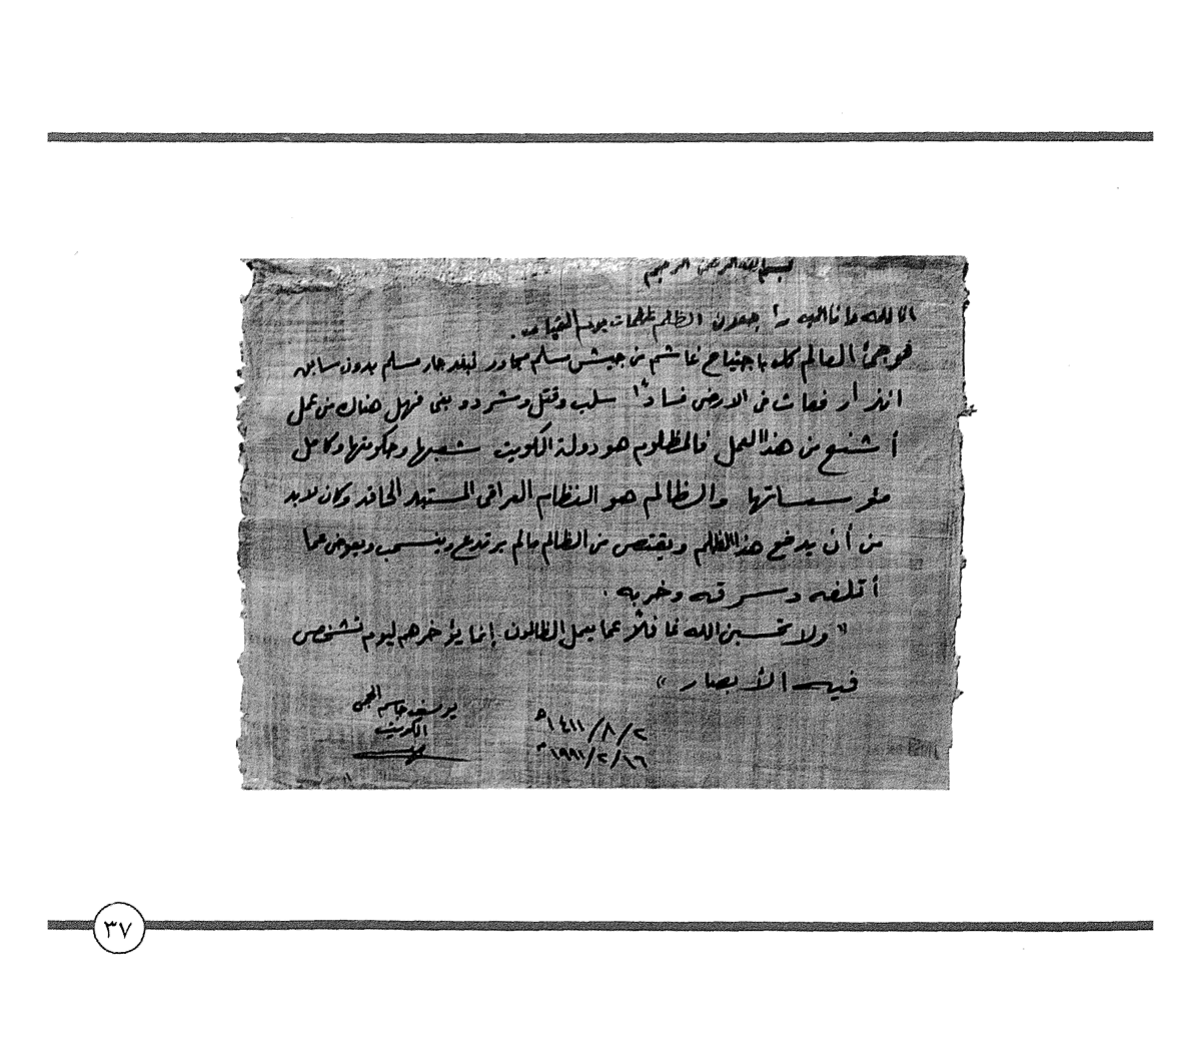 بسم الله الرحمن الرحيم
انا لله وانا اليه راجعون الظلم ظلمات يوم القيامة.
فوجئ العالم كله باجتياح غاشم من جيش مسلم مجاور لبلد جار مسلم بدون سابق
انذار فعاث في الارض فسادًا سلب وقتل وشرد وبغى فهل هناك من عمل
أشنع من هذا العمل فالمظلوم هو دولة الكويت شعبها وحكومتها وكامل
مؤسساتها والظالم هو النظام العراقي المستبد الحاقد وكان لابد
من أن يدفع هذا الظلم ويقتص من الظالم مالم يرتدع وينسحب ويعوض عما
أتلفه وسرقه وخربه.
" ولا تحسبن الله غافلاً عما يعمل الظالمون إنما يؤخرهم ليوم تشخص
فيه الأبصار "
يوسف جاسم الحجي
الكويت
١٤١١/٨/٢هـ
١٩٩١/٢/١٦م
٣٧